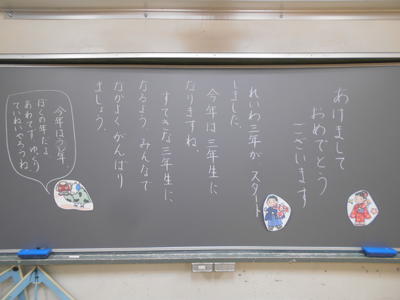 あけまして
おめでとう
ございます
れいわ三年が スタート
しました。
今年は 三年生に
なりますね。
すてきな三年生に
なるよう みんなで
なかよく がんばり
ましょう。
今年はうし年。
ぼくの年だよ
あわてず ゆっくり
ていねいにやろうね。